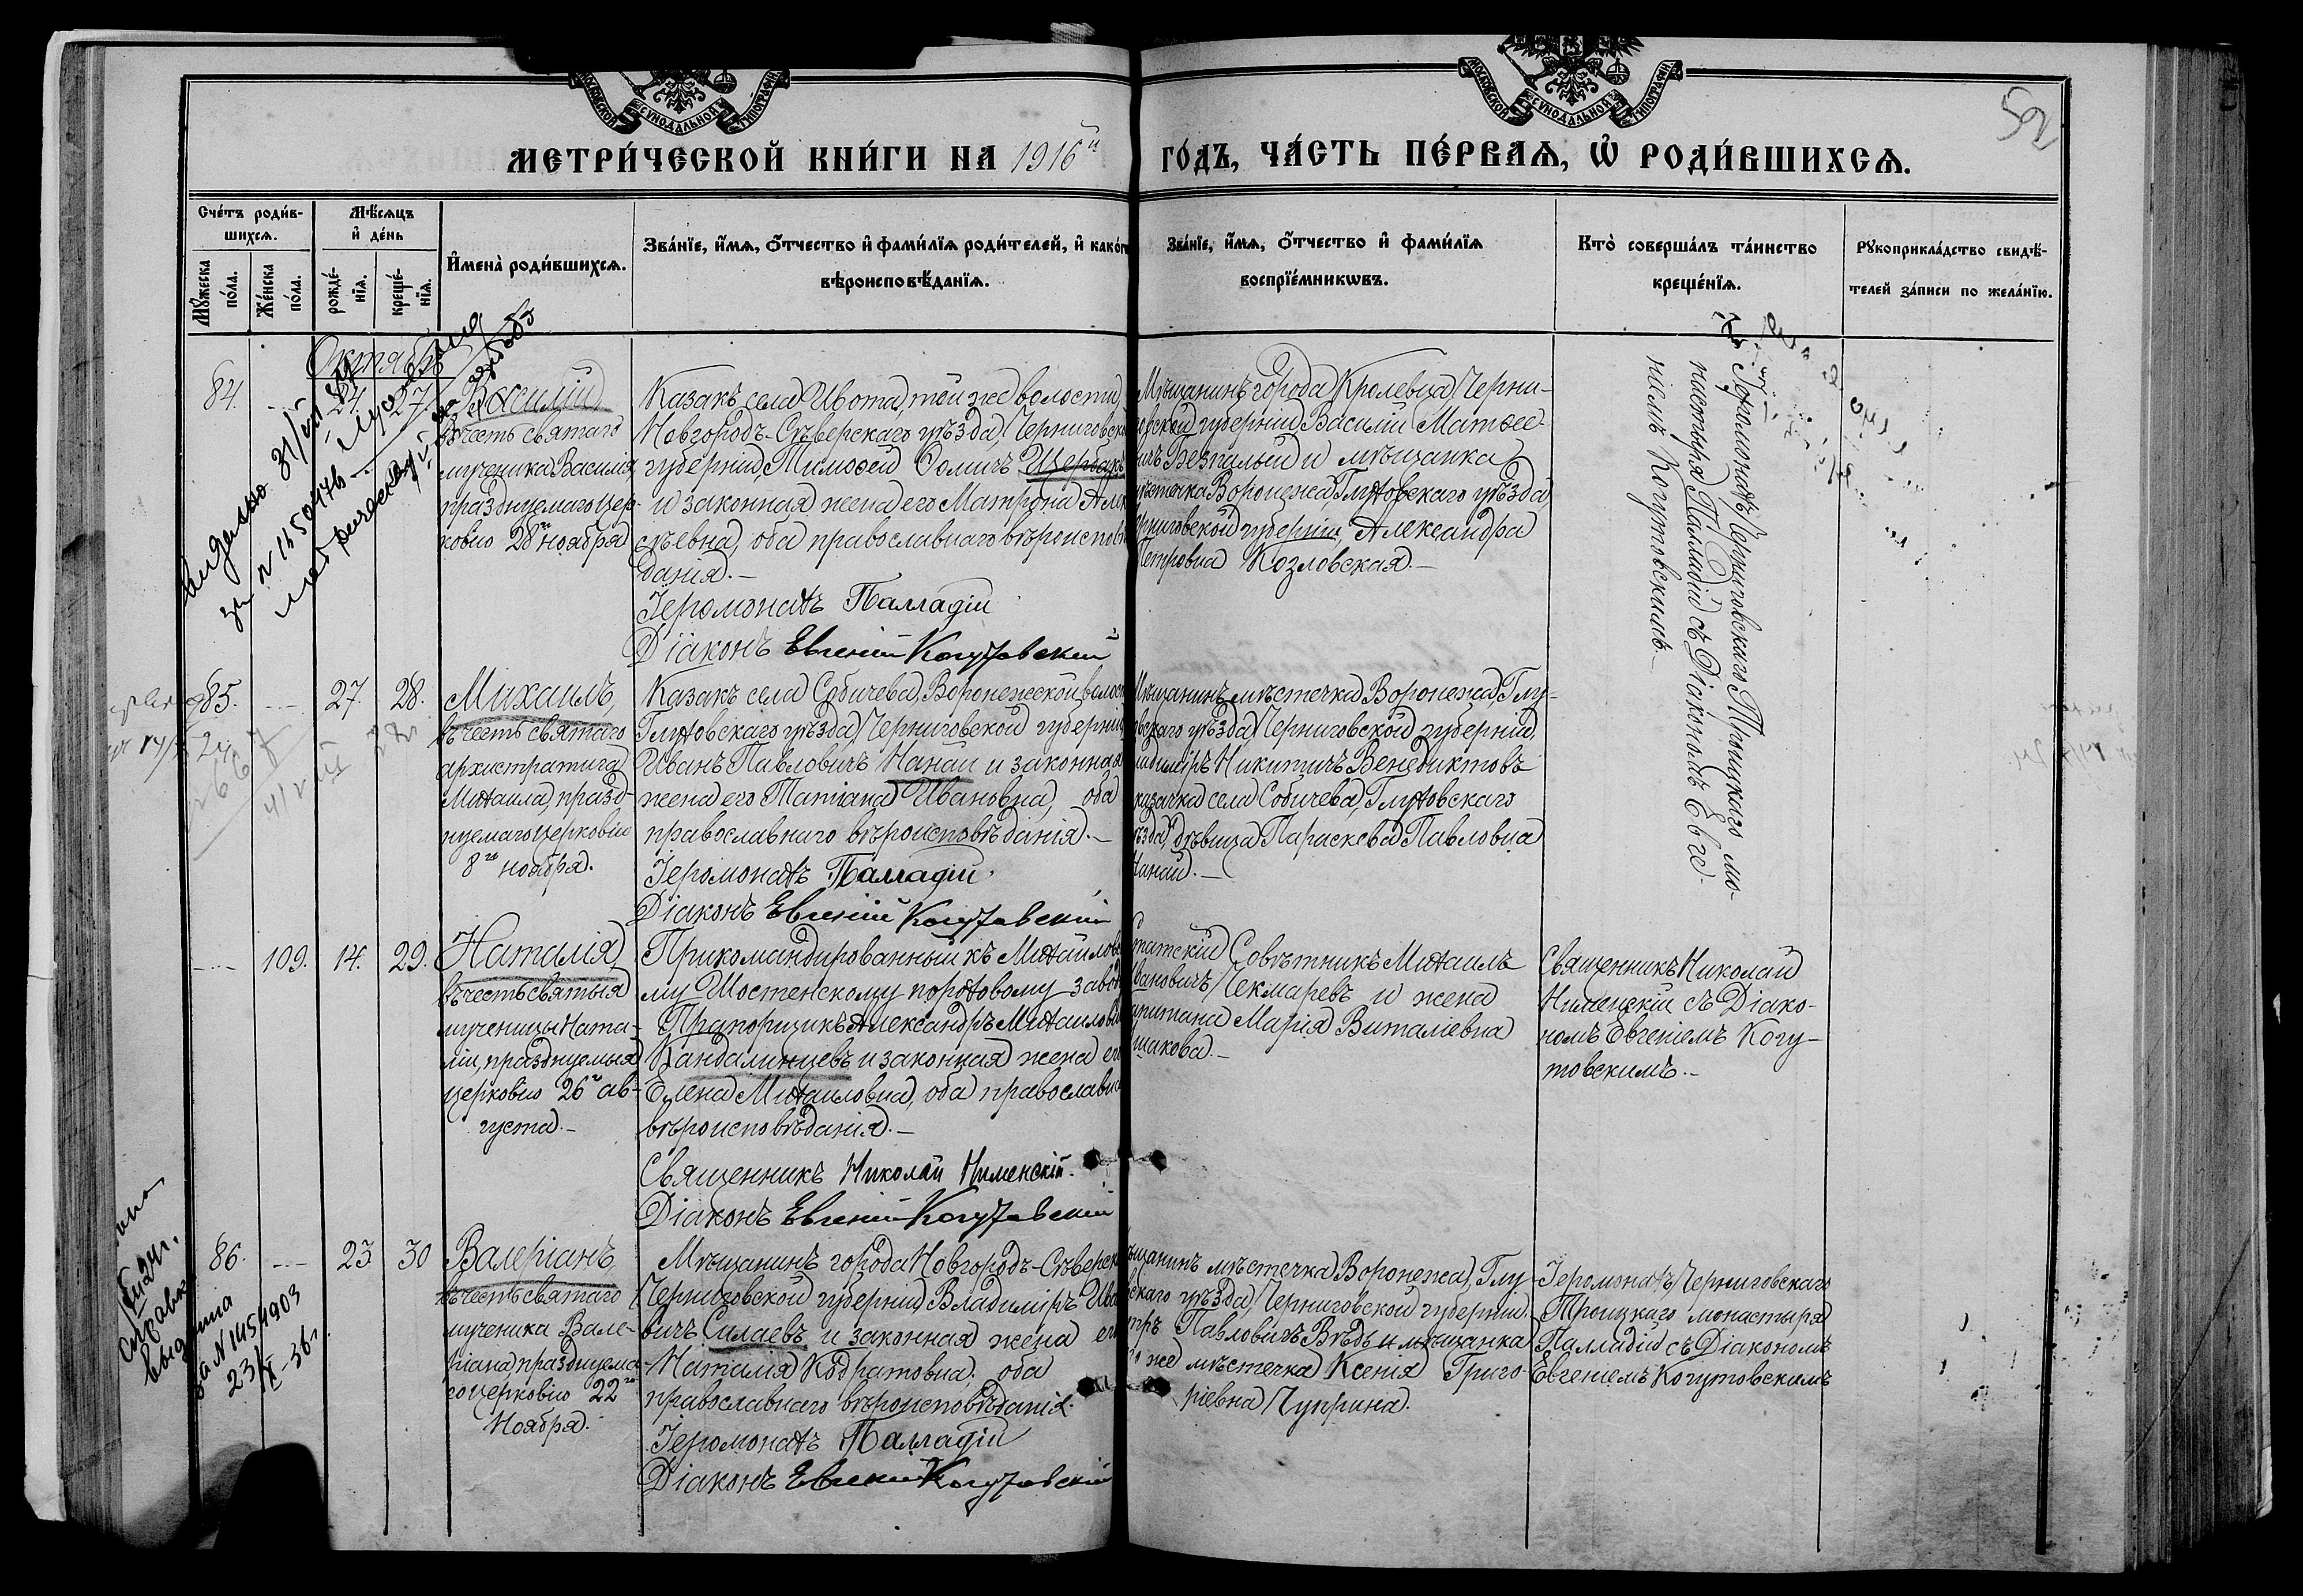 МОСКОВСКОЙ СѴНОДАЛЬНОЙ ТИПОГРАФІИ
МОСКОВСКОЙ СѴНОДАЛЬНОЙ ТИПОГРАФІИ
52
МЕТРИ́ЧЕСКОЙ КНИ́ГИ НА 1916й ГО́ДЪ, ЧА́СТЬ ПЕ́РВАѦ, Ѡ҆ РОДИ́ВШИХСѦ.
Сче́тъ роди́в-
шихсѧ.
Мꙋ́жеска по́ла.
Же́нска по́ла.
Мѣ́сѧцъ
и҆ де́нь
рожде́-
нїѧ.
креще́-
нїѧ.
И҆мена̀ роди́вшихсѧ.
Зва́нїе, и҆́мѧ, ѻ҆́тчество и҆ фами́лїѧ роди́телей, и҆ како́гѡ
вѣроисповѣ́данїѧ.
Зва́нїе, и҆́мѧ, ѻ҆́тчество и҆ фами́лїѧ
воспрїе́мникѡвъ.
Кто̀ соверша́лъ та́инство
креще́нїѧ.
Рꙋкоприкла́дство свидѣ́-
телей за́писи по жела́нїю.
Октябрь
84.
24.
27.
Василій
въ честь святаго
мученика Василія,
празднуемаго цер-
ковію 28го ноября
Казакъ села Ивота, той же волости
Новгородъ-Сѣверскаго уѣзда, Черниговской
губерніи, Тимоѳей Ѳомичъ Щербакъ
и законная жена его Матрона Алек
сѣевна, оба православнаго вѣроисповѣ
данія.—
Іеромонахъ Палладій
Діаконъ Евгеній Когутовскій
Мѣщанинъ города Кролевца, Черни-
говской губерніи Василій Матѳее-
ичъ Безпалый и мѣщанка
мѣстечка Воронежа, Глуховскаго уѣзда,
Черниговской губерніи, Александра
Петровна Козловская.—
Іеромонахъ Черниговскаго Троицкаго мо-
настыря Палладій съ Діакономъ Евге-
ніемъ Когутовскимъ.—
85.
27.
28.
Михаилъ,
въ честь святаго
архистратига
Михаила, празд-
нуемаго церковію
8го ноября.
Казакъ села Собичева, Воронежской волост
Глуховскаго уѣзда, Черниговской губерніи,
Иванъ Павловичъ Нанай и законная
жена его Татіана Ивановна, оба
православнаго вѣроисповѣданія.—
Іеромонахъ Палладій.
Діаконъ Евгеній Когутовскій
Мѣщанинъ мѣстечка Воронежа, Глу-
ховскаго уѣзда, Черниговской губерніи,
Владиміръ Никитичъ Венедиктовъ
казачка села Собичева, Глуховскаго
уѣзда, дѣвица Параскева Павловна
Нанай.—
109.
14.
29.
Наталія,
въ честь святыя
мученицы Ната-
ліи, празднуемыя
церковію 26го ав-
густа.—
Прикомандированный къ Михайловско
му Шостенскому пороховому заводу
Прапорщикъ Александръ Михаилови
Кандалинцевъ и законная жена его
Елена Михаиловна, оба православна
вѣроисповѣданія.—
Священникъ Николай Нименскій.
Діаконъ Евгеній Когутовскій
Статскій Совѣтникъ Михаилъ
Ивановичъ Чекмаревъ и жена
капитана Марія Виталіевна
Ушакова.—
Священникъ Николай
Нименскій съ Діако-
номъ Евгеніемъ Когу-
товскимъ.—
86.
23
30
Валеріанъ,
въ честь святаго
мученика Вале-
ріана, празднуема-
го церковію 22го
Ноября.
Мѣщанинъ города Новгородъ-Сѣверск
Черниговской губерніи Владиміръ Ива
вичъ Силаевъ и законная жена его
Наталія Кодратовна, оба
православнаго вѣроисповѣданія.
Іеромонахъ Палладій
Діаконъ Евгеній Когутовскій
мѣщанинъ мѣстечка Воронежа, Глу-
ховскаго уѣзда, Черниговской губерніи.
Петръ Павловичъ Вѣдь и мѣщанка
того же мѣстечка Ксенія Григо-
ріевна Чуприна.
Іеромонахъ Черниговскаго
Троицкаго монастыря
Палладій съ Діакономъ
Евгеніемъ Когутовскимъ
Справка
выдана
за N 1454903
23/IX-36г.